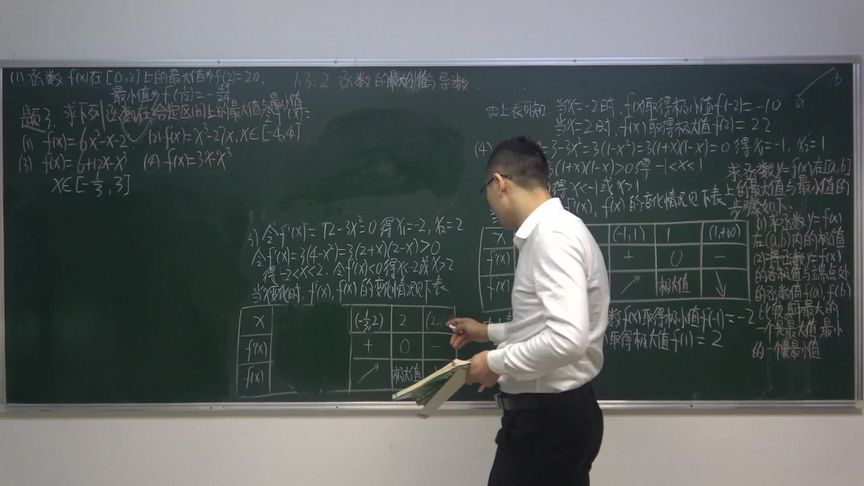 (1) 函数 f(x)在[0,2]上的最大值为f(2)=20.
最小值为
1.3.2 函数的最大(小)值与导数
题3. 求下列函数在给定区间上的最大值与最小值:
(1) f(x)=6x²-x-2
(2) f(x)=x³-27x, x∈[-4,4]
(3) f(x)=6+12x-x³
(4) f(x)=3x-x³
x∈[-1/3, 3]
3) 令f'(x)=12-3x²=0得x₁=-2, x₂=2
令f'(x)=3(4-x²)=3(2+x)(2-x)>0
得-2<x<2. 令f'(x)<0得x<-2或x>2
当x变化时, f'(x), f(x)的变化情况见下表
x (-1/3,2) 2 (2,
f'(x) + 0
f(x) ↗ 极大值
由上表可知 当x=-2时, f(x)取得极小值f(-2)=-10
当x=2时, f(x)取得极大值f(2)=22
(4) =3-3x²=3(1-x²)=3(1+x)(1-x)=0 得x₁=-1, x₂=1
3(1+x)(1-x)>0得-1<x<1
得x<-1或x>1
f'(x), f(x)的变化情况见下表
x (-1,1) 1 (1,+∞)
f'(x) + 0 -
f(x) ↗ 极大值 ↘
数f(x)取得极小值f(-1)=-2
取得极大值f(1)=2
a b
求函数y=f(x)在[a,b]
上的最大值与最小值的
步骤如下:
(1)求函数y=f(x)
在(a,b)内的极值
(2)将函数y=f(x)
的各极值与端点处
的函数值f(a), f(b)
比较,其中最大的
一个是最大值,最小
的一个是最小值